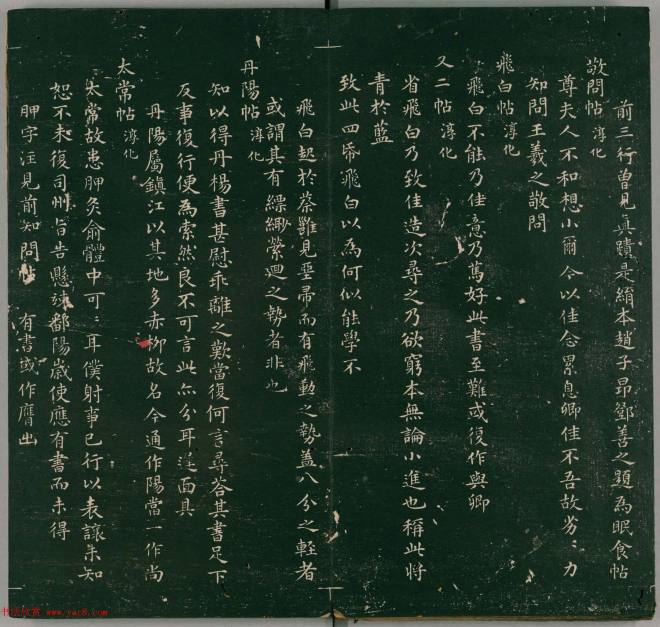 前三行曽見真蹟是絹本趙子昂鄧善之題為眠食帖
敬問帖 淳化
尊夫人不和想小爾今以佳念累息卿佳不吾故劣〻力
知問王羲之敬問
飛白帖 淳化
飛白不能乃佳意乃篤好此書至難或復作與卿
又二帖 淳化
省飛白乃致佳造次尋之乃欲窮本無論小進也稱此將
青於藍
致此四帋飛白以為何似能學不
飛白起於蔡邕見堊帚而有飛動之勢蓋八分之輕者
或謂其有縈迴之勢者非也
丹陽帖 淳化
知以得丹楊書甚慰乖離之歎當復何言尋荅其書足下
反事復行便為索然良不可言此亦分耳遲面具
丹陽屬鎮江以其地多赤柳故名今通作陽當一作尚
太常帖 淳化
太常故患胛灸俞體中可〻耳僕射事已行以表讓未知
恕不未復司州旨告懸竦鄱陽歲使應有書而未得
胛字注見前知問帖 有書或作膺出
书法欣赏 www.yac8.com